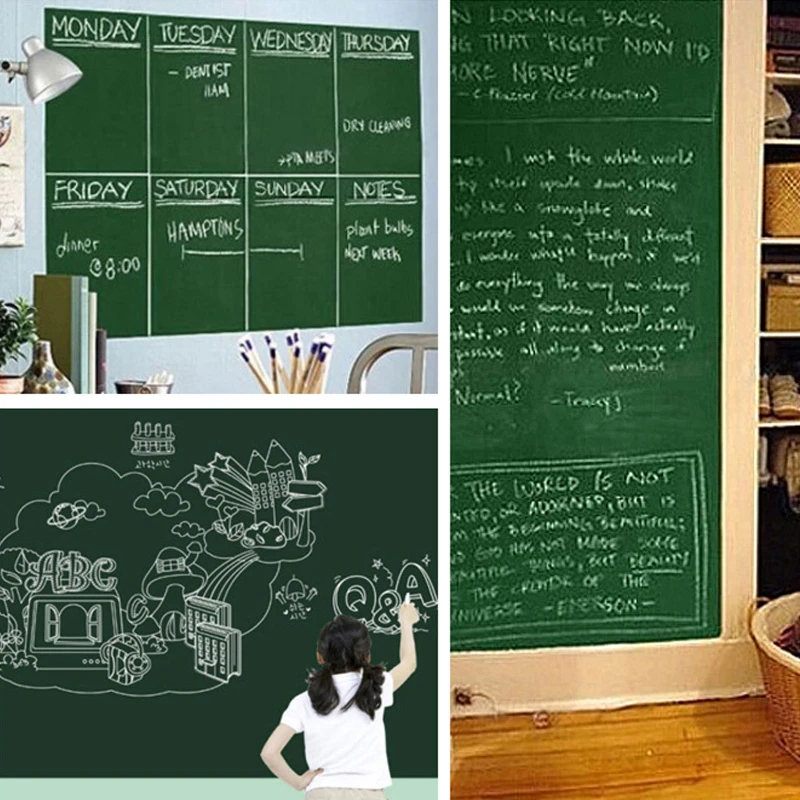 MONDAY
TUESDAY
WEDNESDAY
THURSDAY
- DENTIST
11AM
DRY CLEANING
→PTA MEETS
FRIDAY
SATURDAY
SUNDAY
NOTES
dinner
@ 8:00
HAMPTONS
plant bulbs
NEXT WEEK
N LOOKING BACK,
NG THAT "RIGHT NOW I'D
MORE NERVE"
- C. Frazier (Cold Mountain)
I wish the whole world
itself upside down, shake
up like a snowglobe and
everyone into a totally different
I wonder what'd happen, if we'd
do everything the way we always
would we somehow change in
as if it would have actually
possible all along to change if
Normal?
- Tracey J
THE WORLD IS NOT
OR ADORNED, BUT IS
THE BEGINNING BEAUTIFUL;
GOD HAS NOT MADE SOME
THINGS, BUT BEAUTY
THE CREATOR OF THE
UNIVERSE -EMERSON-
과학시간
ABC
Q&A
쉬는
시간